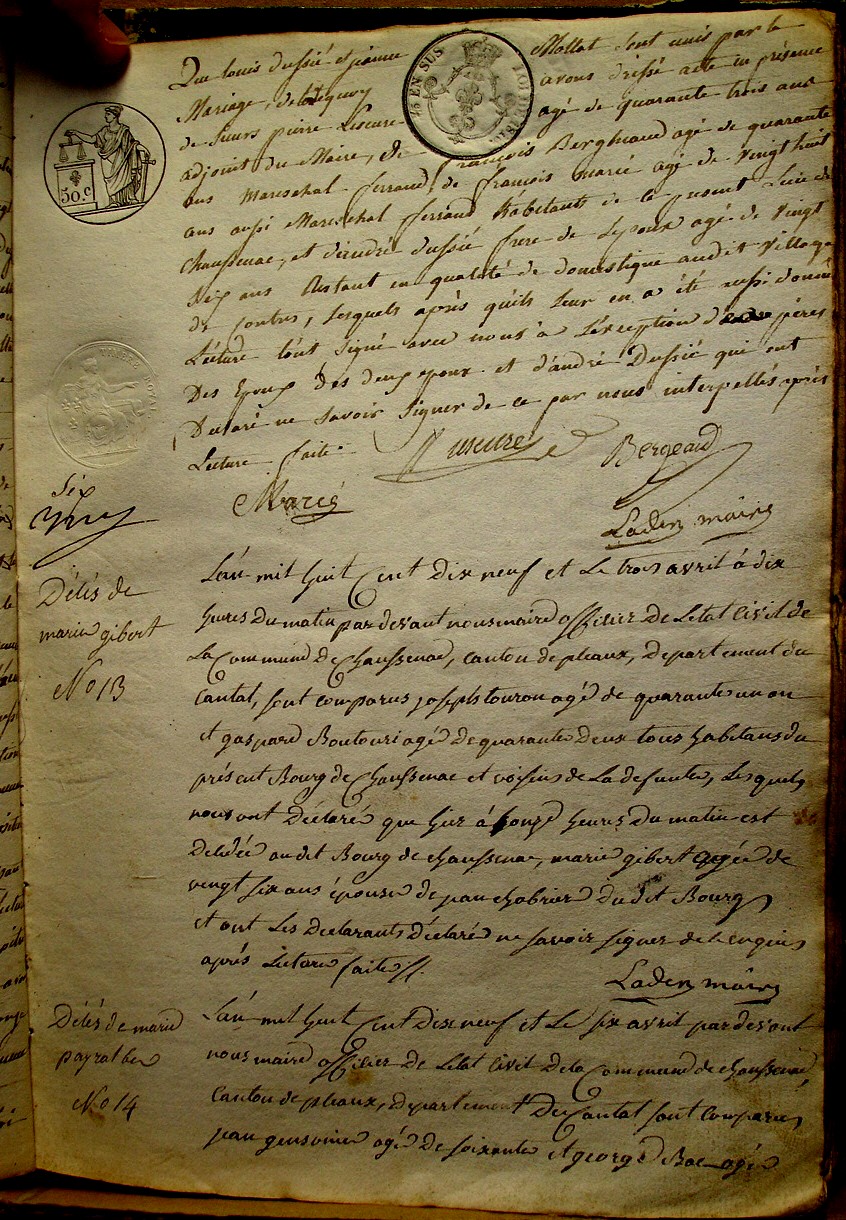 Que louis dussié et jeanne Mollat sont unis par le
Mariage, de tout quoy avons dressé acte en présence
de sieurs pierre Lescure agé de quarante trois ans
adjoint du Maire, de françois Bergheaud agé de quarante
ans Mareschal ferrand, de françois marié agé de vingt huit
ans aussi Mareschal ferrand habitants de ce present lieu de
Chaussenac, et d'andré dussié frere de l'epoux agé de vingt
six ans Restant en qualité de domestique audit village
de Contres, lesquels après qu'ils leur en a été aussi donné
Lecture l'ont signé avec nous à l'exception des pères
Des Epoux des deux epoux et d'andré Dussié qui ont
Declaré ne savoir signer de ce par nous interpellés après
Lecture faite.
Lescure
Bergeaud
Marié
Laden maire
TIMBRE ROYAL
50 c
EN SUS
Six
Décés de
marie gibert
No 13
L'an mil huit Cent Dix neuf et Le trois avril à dix
heures Du matin par devant nous maire officier De L'etat Civil de
La Commune De Chaussenac, canton de pleaux, Departement du
Cantal, sont comparus joseph touron agé de quarante un an
et gaspard Boutouri agé De quarante Deux tous habitans du
présent Bourg de Chaussenac et voisins de La defunte, Les quels
nous ont Déclaré que hier à onze heures Du matin est
Décédée au dit Bourg de chaussenac, marie gibert agée de
vingt six ans épouse de jean chabrier du dit Bourg
et ont Les Declarants Déclaré ne savoir signer de ce enquis
après Lecture faite.
Laden maire
Décés de marie
payralbe
No 14
L'an mil huit Cent Dix neuf et Le six avril par devant
nous maire officier De L'etat Civil De la Commune de chaussenac
Canton de pleaux, departement Du Cantal sont comparus
jean gensonie agé De soixante et george Bac agé